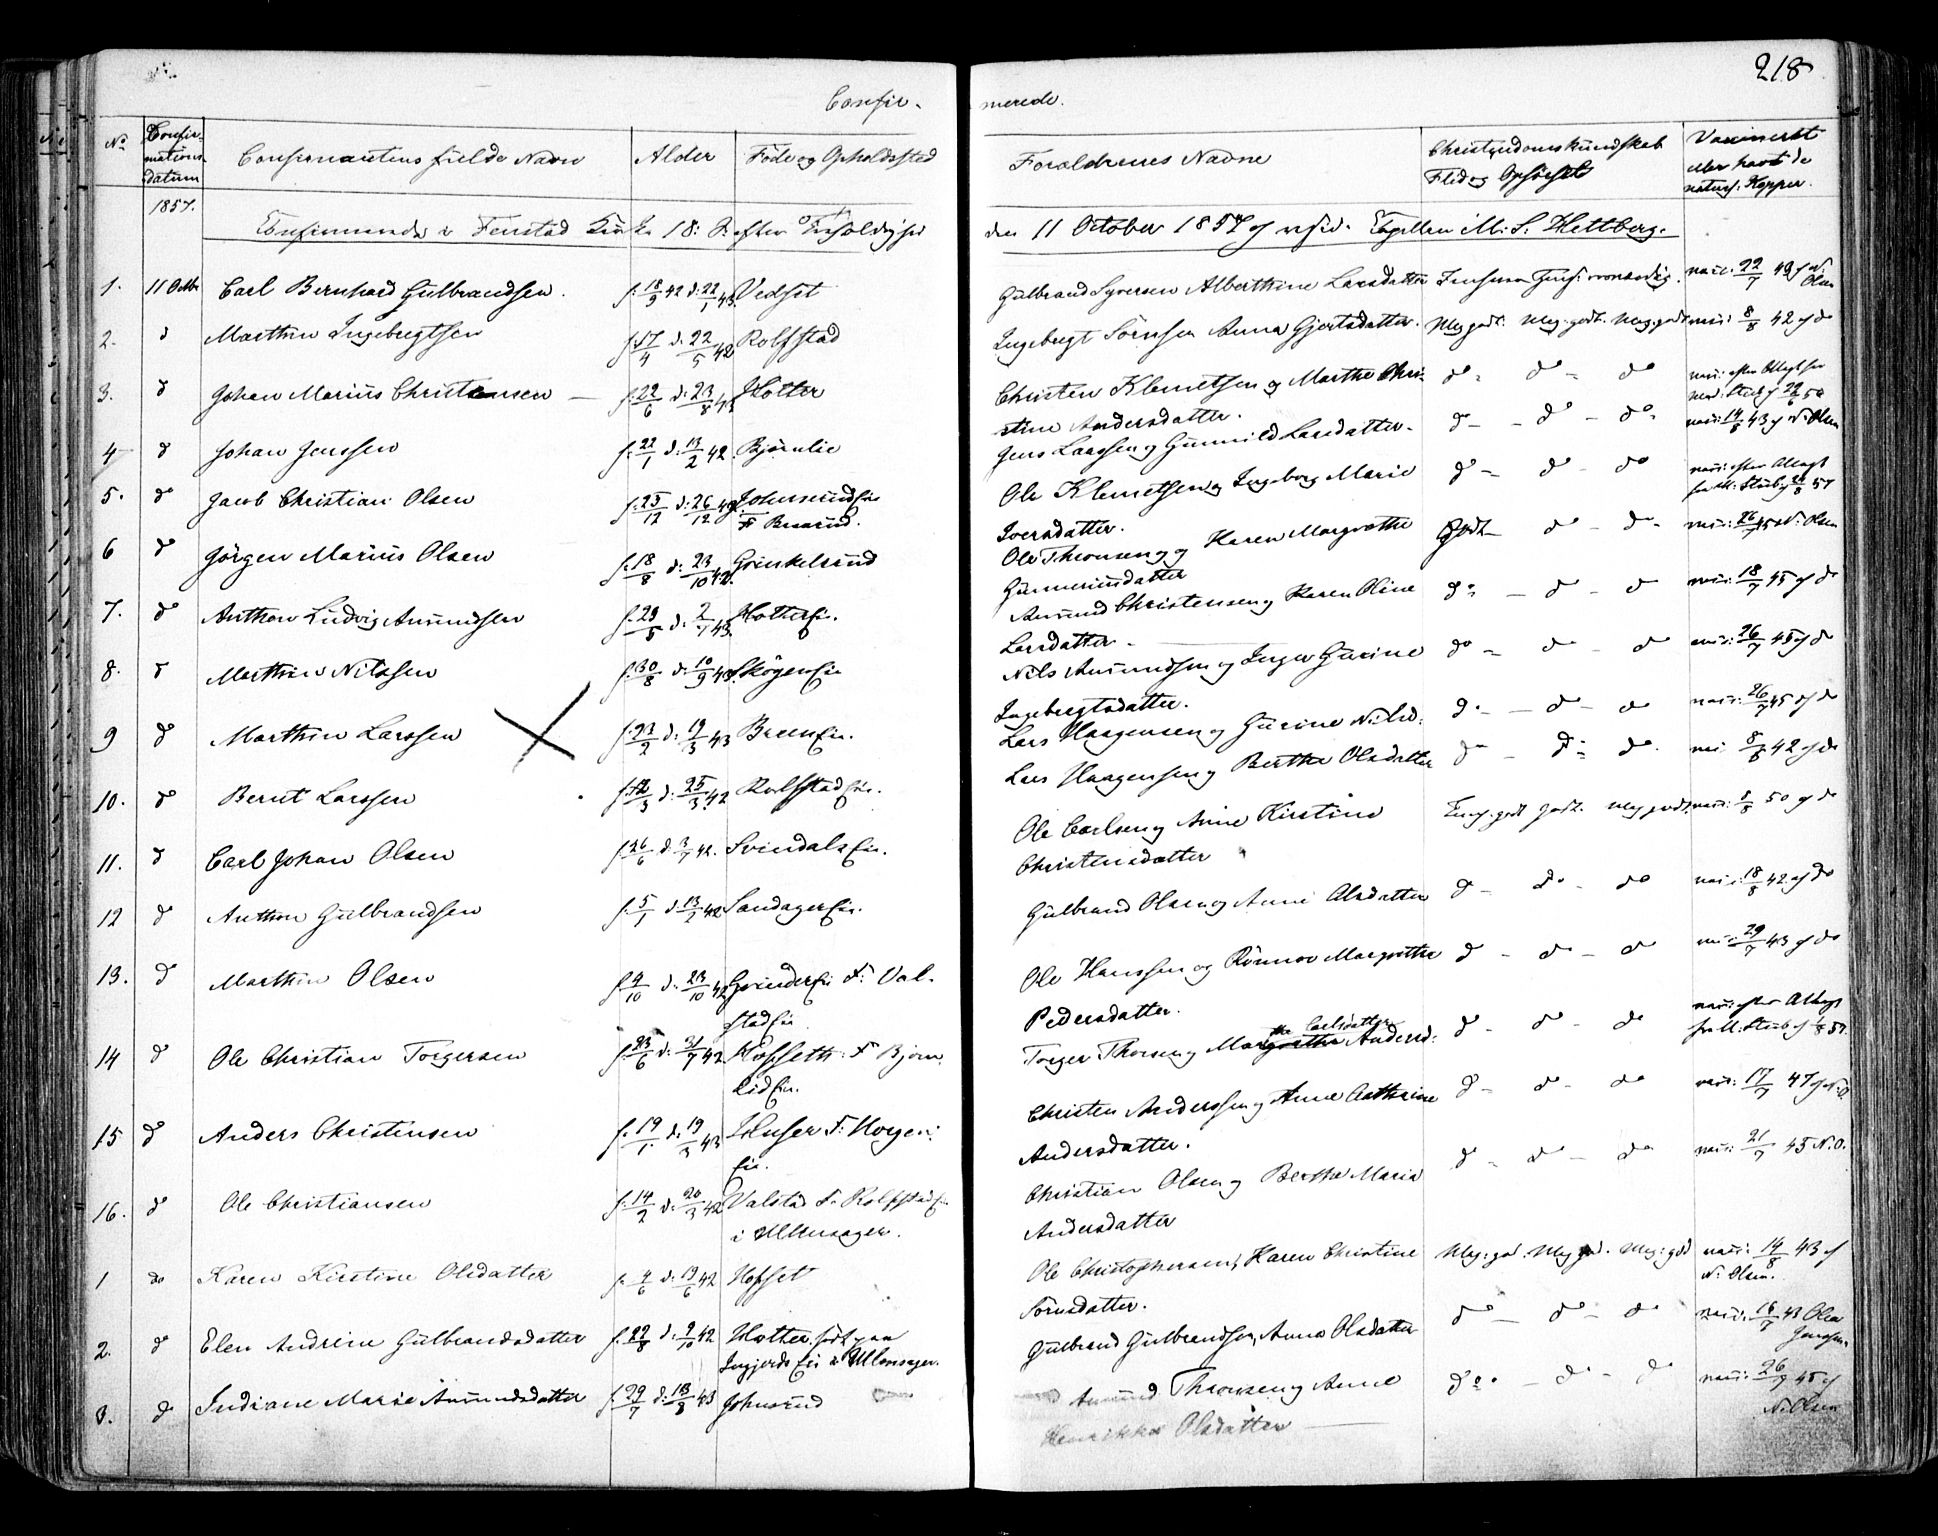 218
Confir-
merede.
No
Confir-
mations
datum
Confirmantens fulde Navn
Alder
Føde og Opholdssted
Forældrenes Navne
Christendomskundskab
Flid og Opførsel
Vaccineret
eller havt de
naturl: Kopper.
1857.
Confirmerede i Fenstad Kirke 18: S: efter
den 11 October 1857 af resid. Capellan M. S. Hettberg.
1. 11 Octbr Carl Bernhard Gulbrandsen. f. 18/9 42 d: 22/1 43 Vedset
Gulbrand Syversen Alberthine Larsdatter
vacc: 22/7 49 af N. Olsen
2. d Marthin Ingebregtsen f. 17/4 d: 22/5 42 Rolfstad
Ingebregt Sörnsen Anna Gjertsdatter. Meg godt. Meg. godt. Meg. godt vacc: 8/8 42 af do
3. do Johan Marius Christensen f. 22/6 d: 23/8 43 Hotter
Christen Klemetsen og Marthe Chri-
stine Andersdatter. do do do
4 do Johan Jenssen f. 22/1 d: 13/2 42. Bjørnlie
Jens Larssen og Gunnild Larsdatter. do - do - do vacc: 14/8 43 af N: Olsen
5. do Jacob Christian Olsen f. 25/12 d: 26/12 Johnsrudeie
F Brusrud.
Ole Klemetsen og Ingeborg Marie
Iversdatter. do - do - do
6 do Jörgen Marius Olsen f. 18/8 d: 23/10 42. Grinkelsrud
Ole Thronsen og Karen Margrethe
Gunnerusdatter Godt - do - do vacc: 26/7 45 N: Olsen
7. do Anthon Ludvig Amundsen f. 29/5 d: 2/7 43 Hottereie.
Amund Christensen og Karen Oline
Larsdatter - do - do - do vacc: 18/7 45 af do
8. d Marthin Nilssen f. 30/8 d: 10/9 43. Skogereie
Nils Amundsen og Inger Gurine
Ingebregtsdatter. do - do - do vacc: 26/7 45 af do
9 do Marthin Larssen f. 23/2 d: 19/3 43 Breeneie.
Lars Haagensen og Gurine Nilsd: do - do - do vacc: 26/7 45 af do
10. do Bernt Larssen f. 12/3 d: 25/3 42 Rolfstadeie.
Lars Haagensen og Berthe Olsdatter do - do - do vacc 8/8 42 af do
11. d Carl Johan Olsen f. 26/6 d 3/7 42. Svindalseie.
Ole Carlsen og Anne Kirstine
Christensdatter Temf. godt godt. Meg godt vacc: 8/8 50 af do
12 do Anthon Gulbrandsen f. 5/1 d: 13/2 42 Sandagereie.
Gulbrand Olsen og Anne Olsdatter do - do - do vacc: 18/8 42 af do
13. do Marthin Olsen f. 4/10 d: 23/10 42 Grindereie F: Val-
stadeie
Ole Hanssen og Rönnov Margrethe
Pedersdatter. do - do - do vacc: 29/7 43 af do
14 do Ole Christian Torgersen f. 23/6 d: 31/7 42 Hofseth: F Bjørn-
lideie.
Torger Thorsen og Margrethe Andersd:
the Carlsdatter
do - do - do
15 do Anders Christensen f. 19/1 d: 19/3 43 Huser F: Horgen:
eie.
Christen Anderssen og Anne Cathrine
Andersdatter. do - do - do vacc: 17/7 47 af N.O.
16. do Ole Christiansen f. 14/2 d: 20/3 42 Valstad F. Rolfstadeie
i Ullensager.
Christian Olsen og Berthe Maria
Andersdatter do - do - do vacc: 21/7 45 N.O.
1 do Karen Kirstine Olsdatter f. 4/6 d: 19/6 42 Hofset
Ole Christophersen, Karen Christine
Sörnsdatter. Meg: god. Meg god. Meg: god vacc: 14/8 43 af
N: Olsen.
2. do Elen Andrine Gulbrandsdatter f. 22/8 d: 9/10 42 Hotter, født paa
Ingjerdseie i Ullensager.
Gulbrand Gulbrandsen, Anne Olsdatter do - do - do vacc: 16/7 43 Olea
3. do Indiane Marie Amundsdatter f. 29/7 d: 13/8 43 Johnsrud
Amund Thronsen og Anne
Henrikke Olsdatter do. - do - do vacc: 26/7 45 af
N. Olsen